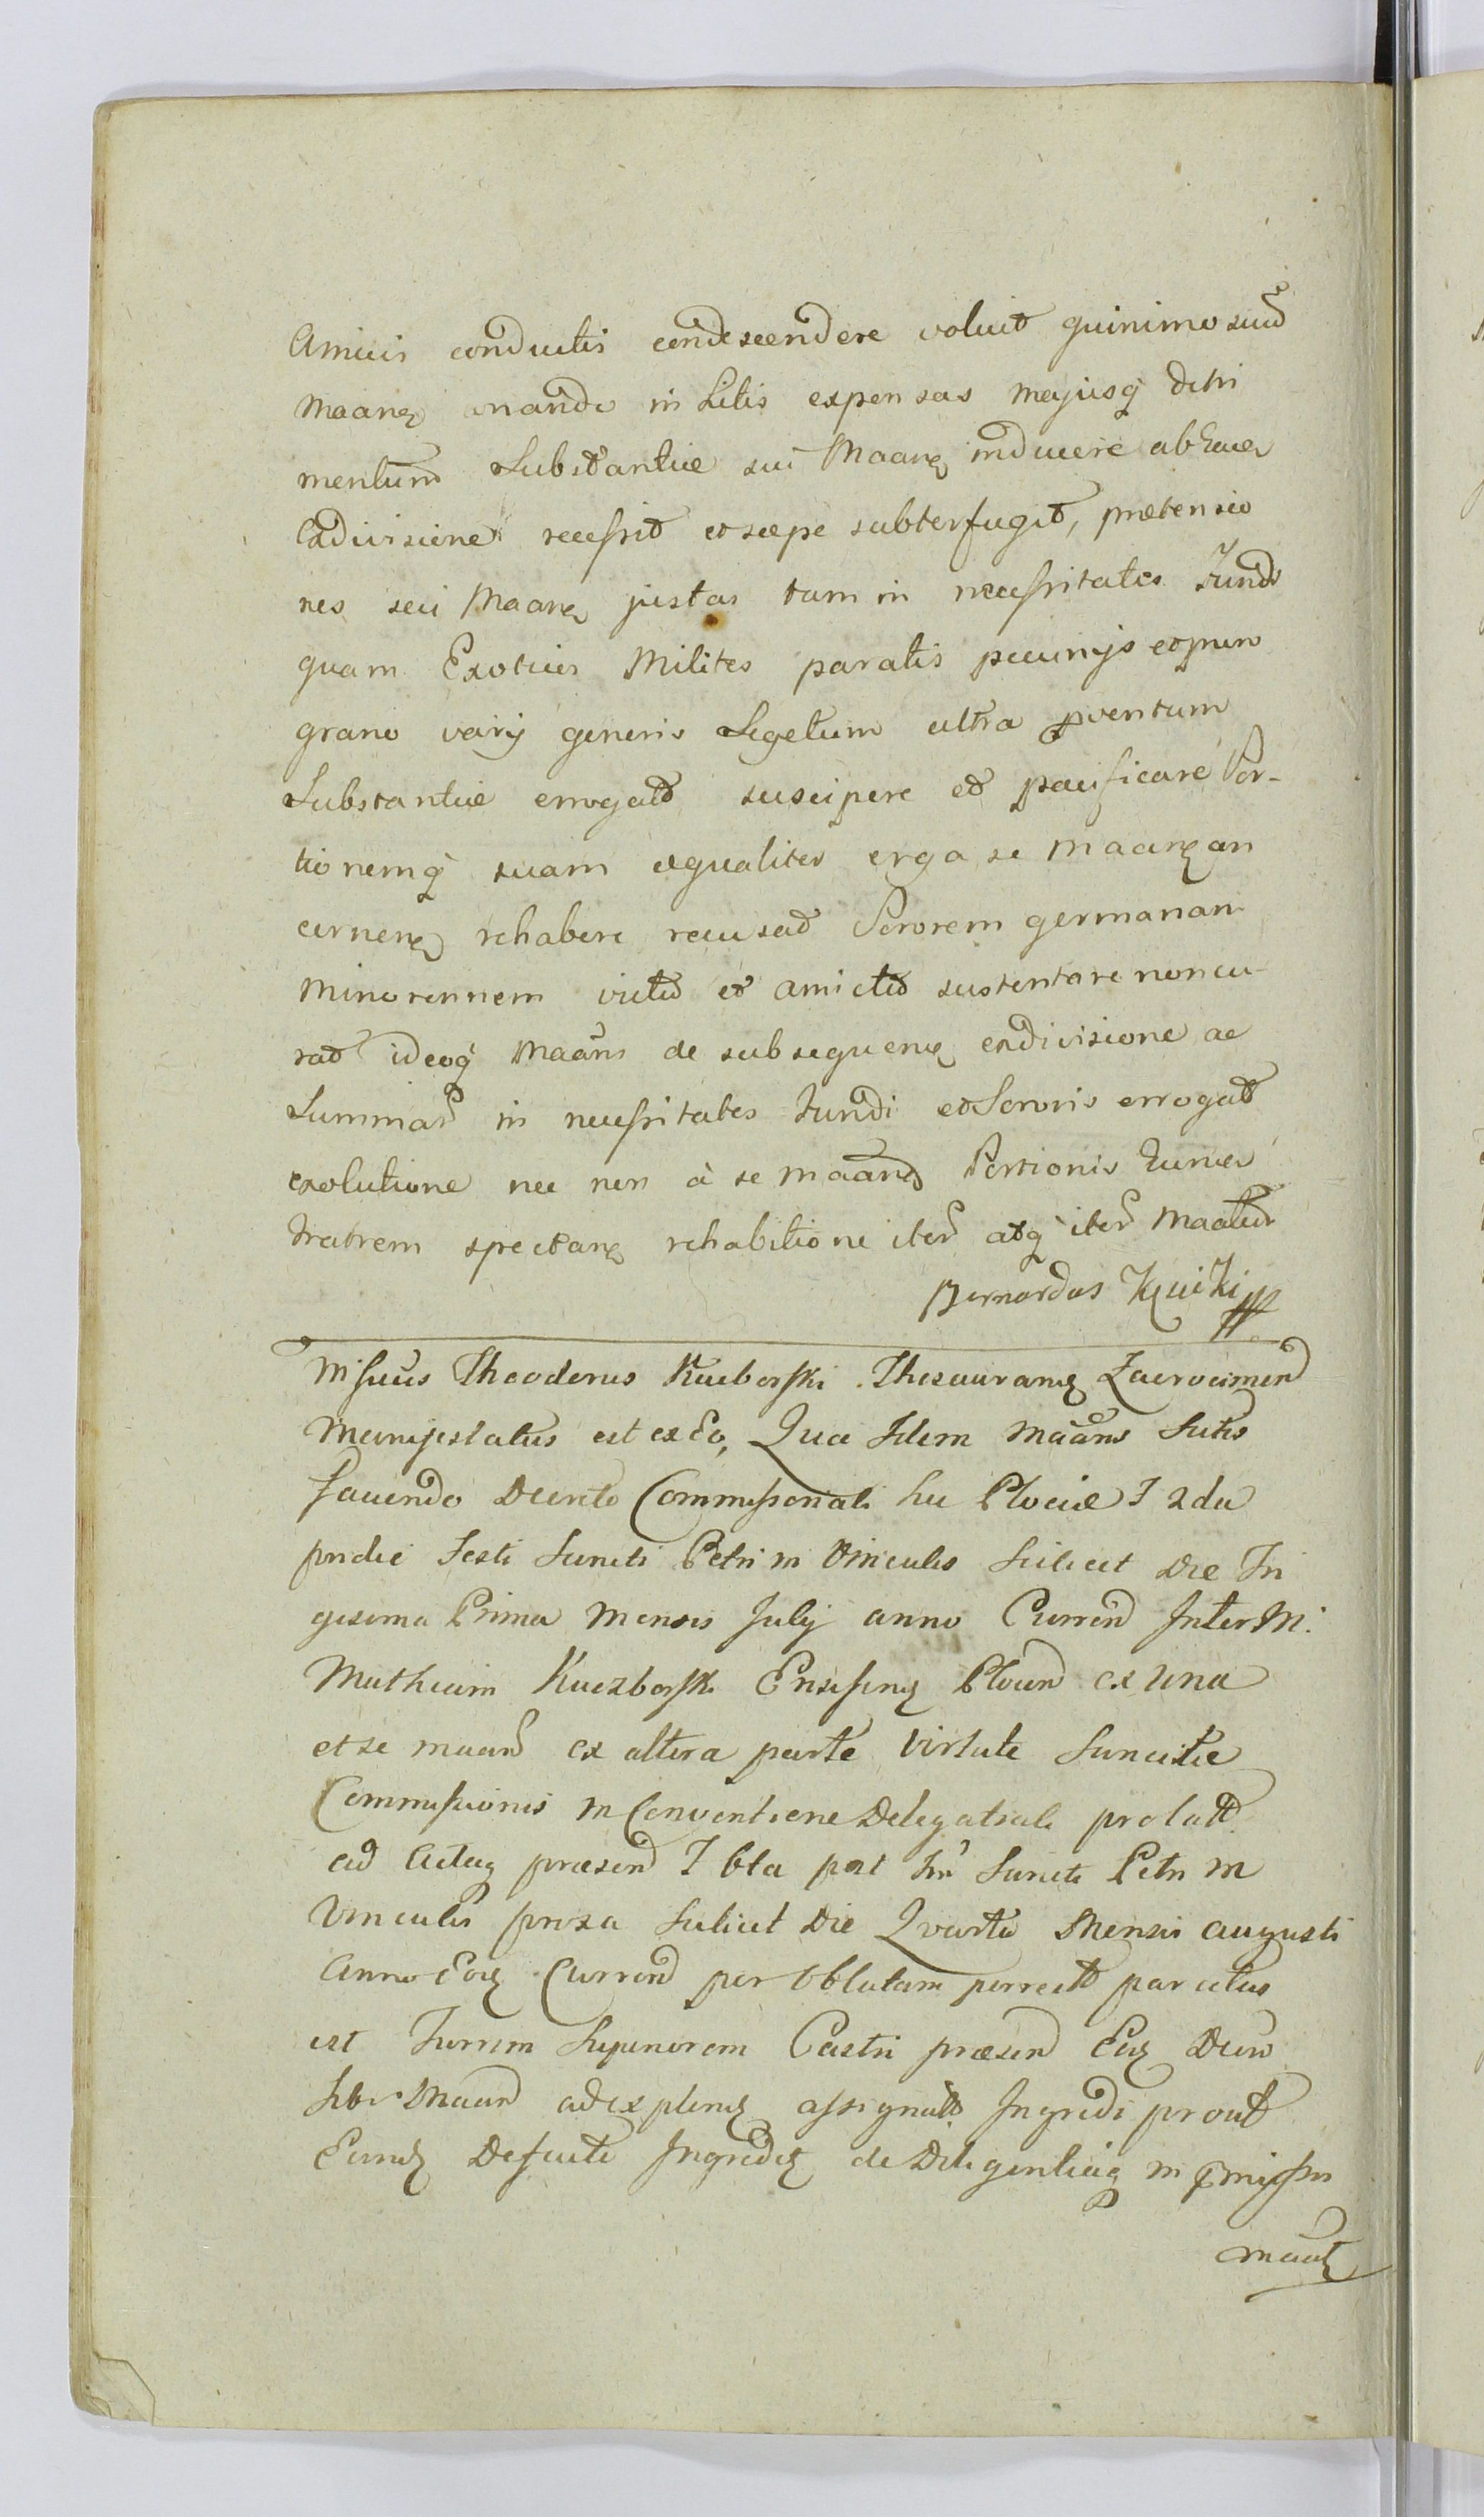 Amicis conductis condescendere voluit quinimo suũ
Maanẽ onando in Litis expensas majusq̃ detri
mentum Substantiæ sui Maanẽ inducere ab Eaue
Exdivisione recessit et sæpe subterfugit, prætensio
nes sui Maanẽ justas tam in necessitates Fundi
quam Exoticis Milites paratis pecunijs et puro
grano varij generis Segetum ultra proventum
Substantiæ errogatt suscipere et pacificare Por-
tionemq̃ suam æqualiter erga se Maanẽ
rehabere recusat Sororem germanam
Minorennem victu et amictu sustentare non cu-
rat ideoq̃ Maãns de subsequenẽ exdivisione ac
Summar in necessitates Fundi et Sororis errogatt
exolutione nec non à se Maand Portionis
Fratrem spectanẽ rehabitione iter atq̃ iter Maatur
Bernardus
Theodorus Kuczborski Thesaurariuẽ Zacrocimen
Manifestatus est ex Eo, Qua Idem Maãns Satis
faciendo Decreto Commissoriali hic Plociæ F 2da
pridie Festi Sancti Petri in Vinculis scilicet Die Tri
gesima Prima Mensis Julij anno Curren Inter M.
Mathiam Kuczborski Ensiferuẽ Plocen ex una
et se maan ex altera parte Virtute Sancitæ
Commissionis in Conventione Delegatiali prolatt
ad Actaq̃ præsen F 6ta post Fm Sancti Petri in
Vinculis proxa scilicet Die Qvarta Mensis augusti
Anno Eoq̃ Curren per Oblatam porrectt paratus
est Turrim Superiorem Castri præsen Eoq̃ Decro
Sibi Maan ad explenẽ assignatt Ingredi prout
Eamẽ Defacto Ingreditq̃ de Diligentiaq̃ in præmissis
maatz